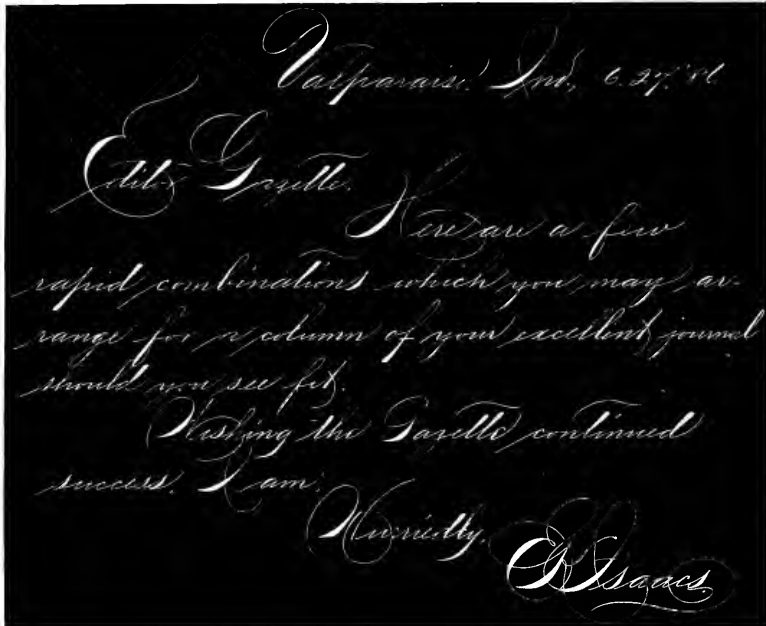 Valparaiso, Ind., 6.27.'86
Editor Gazette.
Here are a few
rapid combinations which you may ar-
range for a column of your excellent journal
should you see fit.
Wishing the Gazette continued
success. I am.
Hurriedly,
Isaacs.